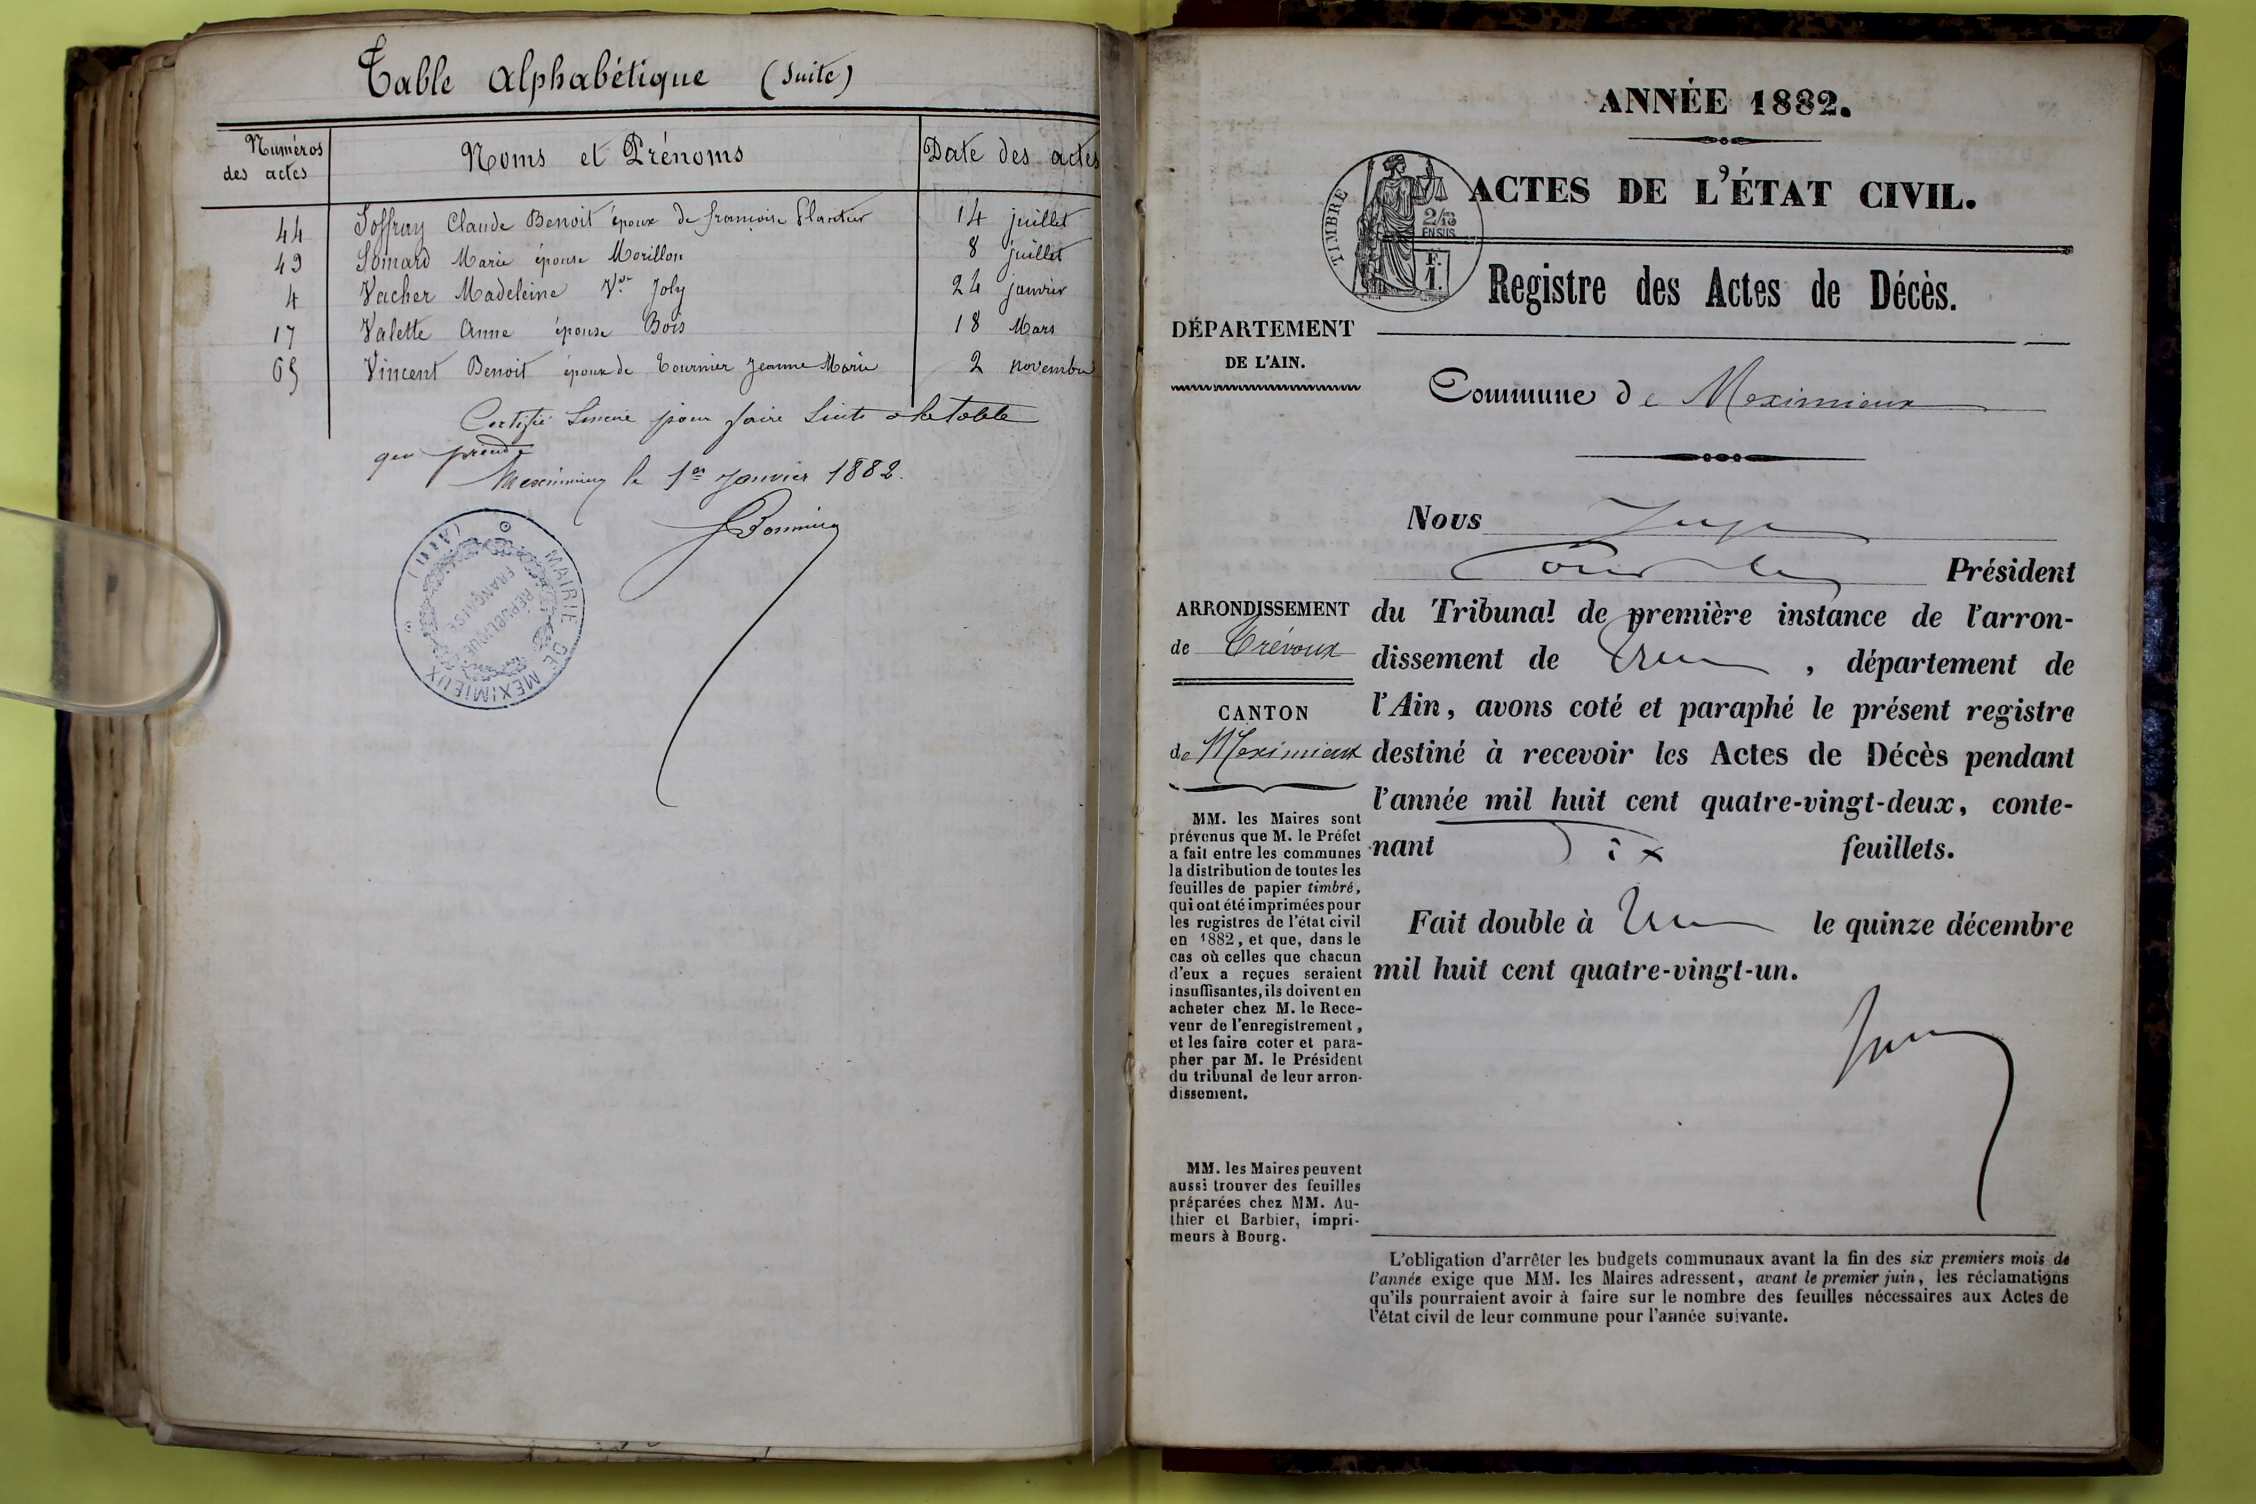 Table Alphabétique (Suite)
Numéros des actes
Noms et Prénoms
Date des actes
44 Joffray Claude Benoit époux de françoise Plantier 14 juillet
43 Somard Marie épouse Morillon 8 juillet
4 Vacher Madeleine Vve Joly 24 janvier
17 Valette Anne épouse Bois 18 Mars
65 Vincent Benoit époux de Tournier Jeanne Marie 2 novembre
Certifié Sincère pour faire Suite à la table
qui
Meximieux le 1er Janvier 1882.
MAIRIE DE MEXIMIEUX (AIN)
RÉPUBLIQUE FRANÇAISE
ANNÉE 1882.
ACTES DE L'ÉTAT CIVIL.
TIMBRE
2/10
EN SUS
F.
1.
Registre des Actes de Décès.
DÉPARTEMENT
DE L'AIN.
Commune de Meximieux
Nous
Président
ARRONDISSEMENT
de Trévoux
CANTON
de Meximieux
du Tribunal de première instance de l'arron-
dissement de , département de
l'Ain, avons coté et paraphé le présent registre
destiné à recevoir les Actes de Décès pendant
l'année mil huit cent quatre-vingt-deux, conte-
nant Dix feuillets.
Fait double à le quinze décembre
mil huit cent quatre-vingt-un.
MM. les Maires sont
prévenus que M. le Préfet
a fait entre les communes
la distribution de toutes les
feuilles de papier timbré,
qui ont été imprimées pour
les registres de l'état civil
en 1882, et que, dans le
cas où celles que chacun
d'eux a reçues seraient
insuffisantes, ils doivent en
acheter chez M. le Rece-
veur de l'enregistrement,
et les faire coter et para-
pher par M. le Président
du tribunal de leur arron-
dissement.
MM. les Maires peuvent
aussi trouver des feuilles
préparées chez MM. Au-
thier et Barbier, impri-
meurs à Bourg.
L'obligation d'arrêter les budgets communaux avant la fin des six premiers mois de
l'année exige que MM. les Maires adressent, avant le premier juin, les réclamations
qu'ils pourraient avoir à faire sur le nombre des feuilles nécessaires aux Actes de
l'état civil de leur commune pour l'année suivante.